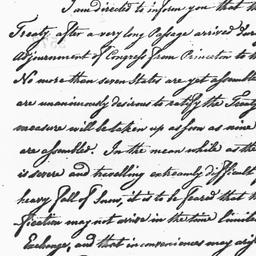 I am directed to inform you that th
Treaty after a very long Passage arrived dur
Adjournment of Congress from Princeton to th
No more than seven States are yet assemble
are unanimously desirous to ratify the Treaty
measure will be taken up as soon as nine
are assembled. In the mean while as the
is severe and travelling extremely difficult
heavy fall of Snow, it is to be feared that th
fication may not arrive in the time limited
Exchange, and that inconveniences may aris